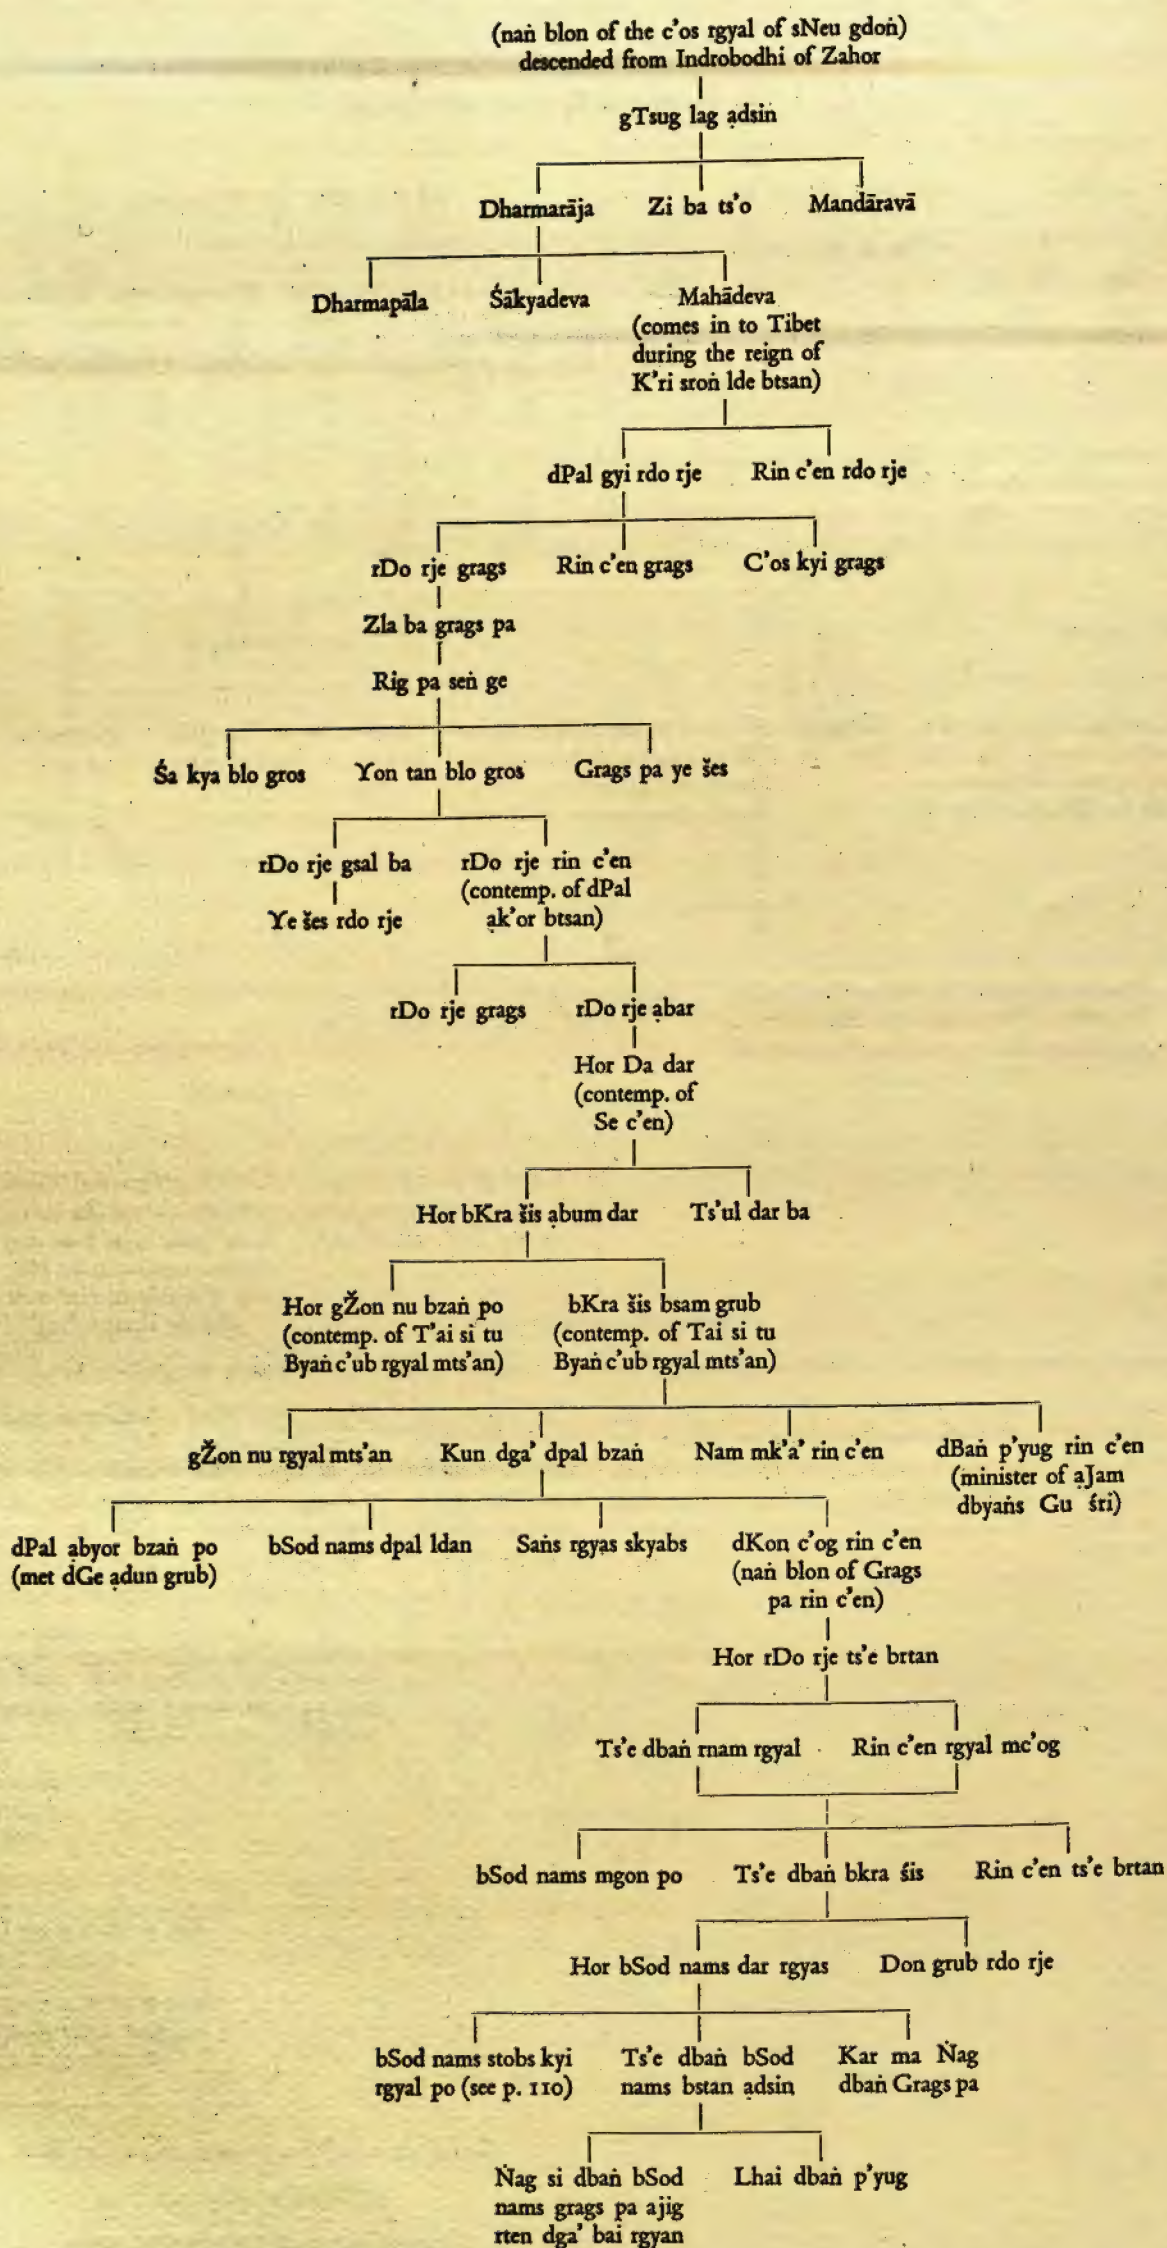 (naṅ blon of the c’os rgyal of sNeu gdoṅ)
descended from Indrobodhi of Zahor
gTsug lag ạdsin
Dharmarāja Zi ba ts’o Mandāravā
Dharmapāla Śākyadeva Mahādeva
(comes in to Tibet
during the reign of
K’ri sroṅ lde btsan)
dPal gyi rdo rje Rin c’en rdo rje
rDo rje grags Rin c’en grags C’os kyi grags
Zla ba grags pa
Rig pa seṅ ge
Śa kya blo gros Yon tan blo gros Grags pa ye šes
rDo rje gsal ba rDo rje rin c’en
(contemp. of dPal
ạk’or btsan)
Ye šes rdo rje
rDo rje grags rDo rje ạbar
Hor Da dar
(contemp. of
Se c’en)
Hor bKra šis ạbum dar Ts’ul dar ba
Hor gŽon nu bzaṅ po
(contemp. of T’ai si tu
Byaṅ c’ub rgyal mts’an)
bKra šis bsam grub
(contemp. of Tai si tu
Byaṅ c’ub rgyal mts’an)
gŽon nu rgyal mts’an Kun dga’ dpal bzaṅ Nam mk’a’ rin c’en dBaṅ p’yug rin c’en
(minister of ạJam
dbyaṅs Gu śri)
dPal ạbyor bzaṅ po
(met dGe ạdun grub)
bSod nams dpal ldan Saṅs rgyas skyabs dKon c’og rin c’en
(naṅ blon of Grags
pa rin c’en)
Hor rDo rje ts’e brtan
Ts’e dbaṅ rnam rgyal Rin c’en rgyal mc’og
bSod nams mgon po Ts’e dbaṅ bkra śis Rin c’en ts’e brtan
Hor bSod nams dar rgyas Don grub rdo rje
bSod nams stobs kyi
rgyal po (see p. 110)
Ts’e dbaṅ bSod
nams bstan ạdsin
Kar ma Ṅag
dbaṅ Grags pa
Ṅag si dbaṅ bSod
nams grags pa ajig
rten dga’ bai rgyan
Lhai dbaṅ p’yug